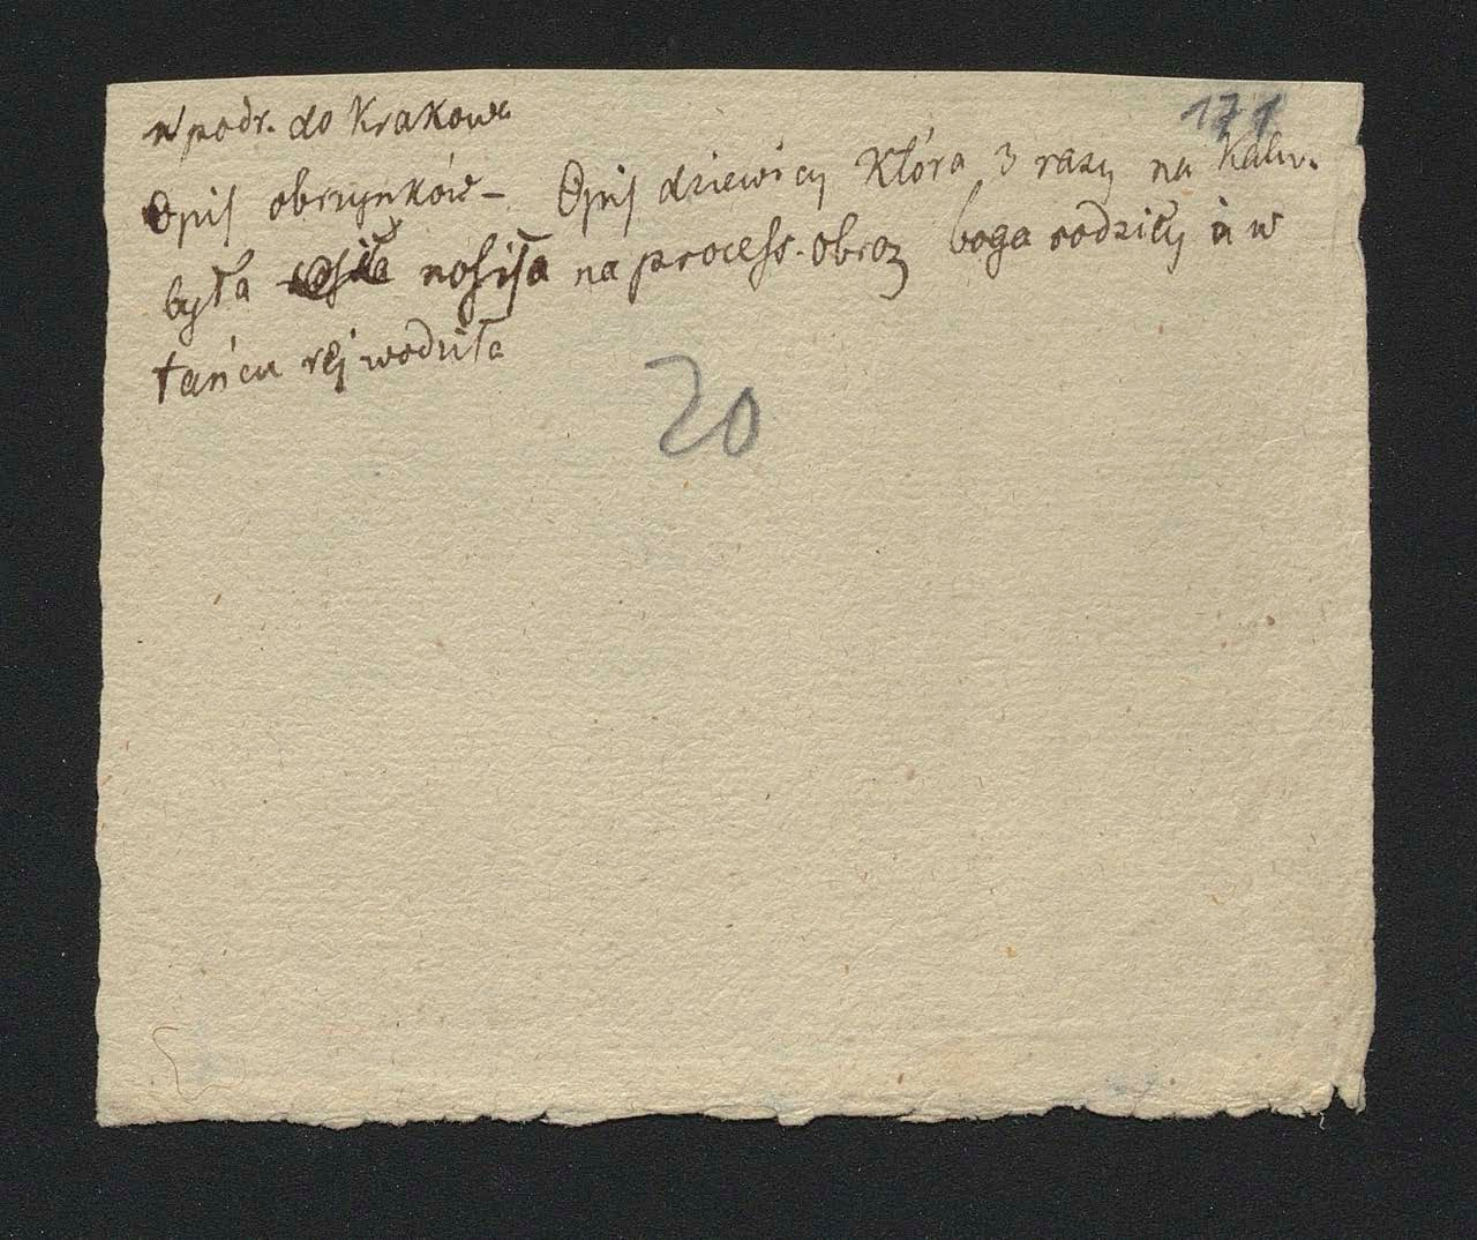 171
W podr. do Krakowa
Opis obrzynków – Opis dziewicy Która 3 razy na Kalw.
była nosiła na process. obraz boga rodziły a w
tańcu rej wodziła
20